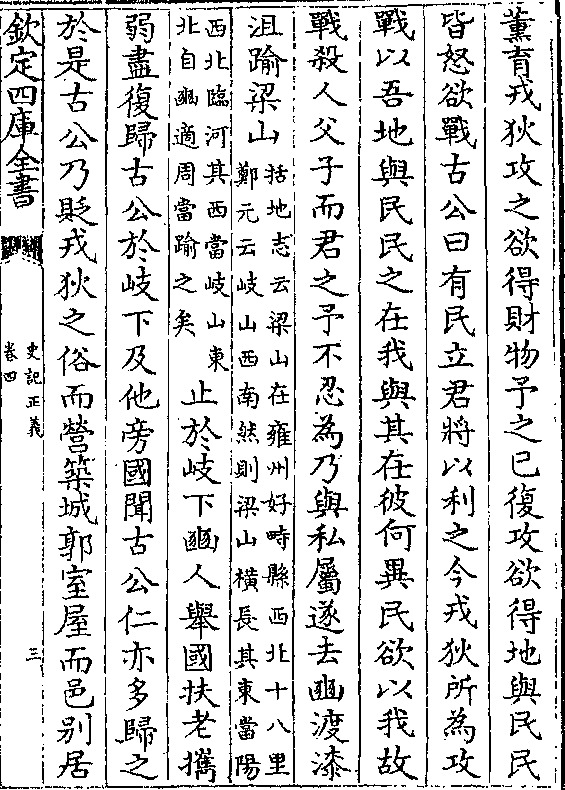 薰育戎狄攻之欲得財物予之已復攻欲得地與民民
皆怒欲戰古公曰有民立君將以利之今戎狄所為攻
戰以吾地與民民之在我與其在彼何異民欲以我故
戰殺人父子而君之予不忍為乃與私屬遂去豳渡漆
沮踰梁山括地志云梁山在雍州好畤縣西北十八里
鄭元云岐山西南然則梁山橫長其東當陽
西北臨河其西當岐山東
北自豳適周當踰之矣
止於岐下豳人舉國扶老攜
弱盡復歸古公於岐下及他旁國聞古公仁亦多歸之
於是古公乃貶戎狄之俗而營築城郭室屋而邑别居
欽定四庫全書
史記正義
卷四
三